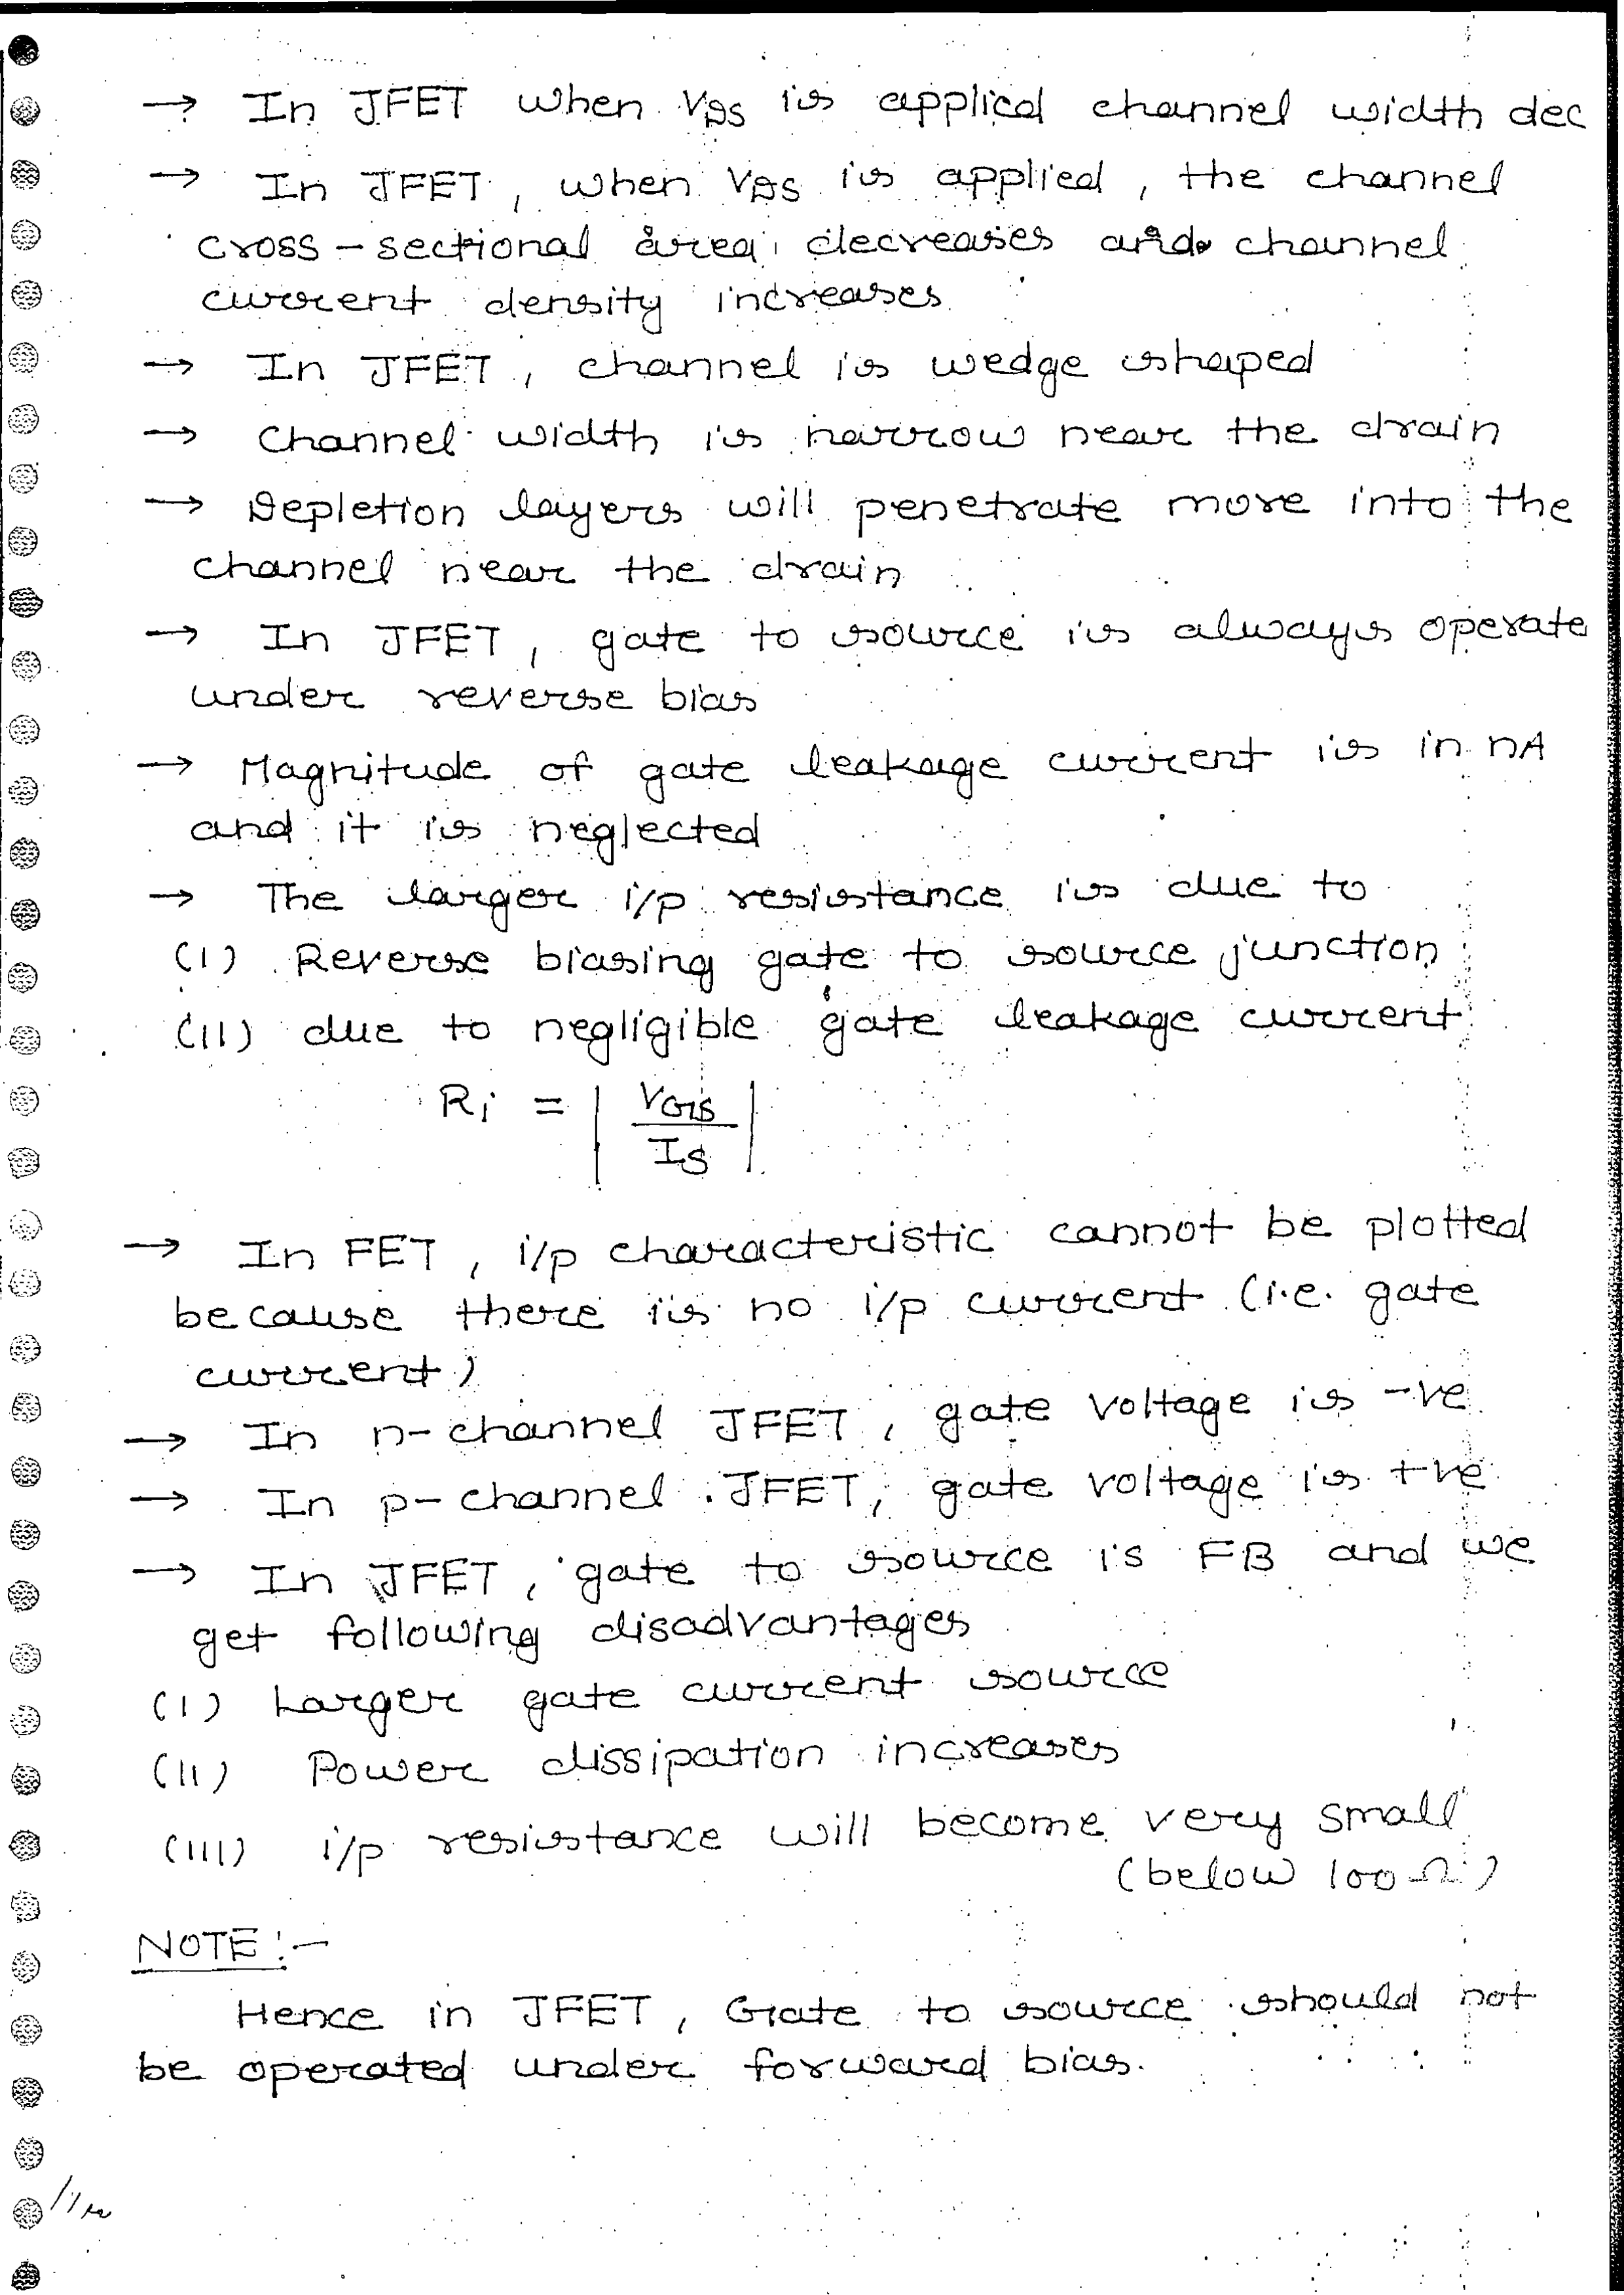 → In JFET when VDS is applied channel width dec
→ In JFET, when VDS is applied, the channel
cross-sectional area decreases and channel
current density increases
→ In JFET, channel is wedge shaped
→ Channel width is narrow near the drain
→ Depletion layers will penetrate more into the
channel near the drain
→ In JFET, gate to source is always operate
under reverse bias
→ Magnitude of gate leakage current is in nA
and it is neglected
→ The larger i/p resistance is due to
(I) Reverse biasing gate to source junction
(II) due to negligible gate leakage current
Ri = | VGS / IS |
→ In FET, i/p characteristic cannot be plotted
because there is no i/p current (i.e. gate
current)
→ In n-channel JFET, gate voltage is -ve
→ In p-channel JFET, gate voltage is +ve
→ In JFET, gate to source is FB and we
get following disadvantages
(I) Larger gate current source
(II) Power dissipation increases
(III) i/p resistance will become very small
(below 100Ω)
NOTE:-
Hence in JFET, Gate to source should not
be operated under forward bias.